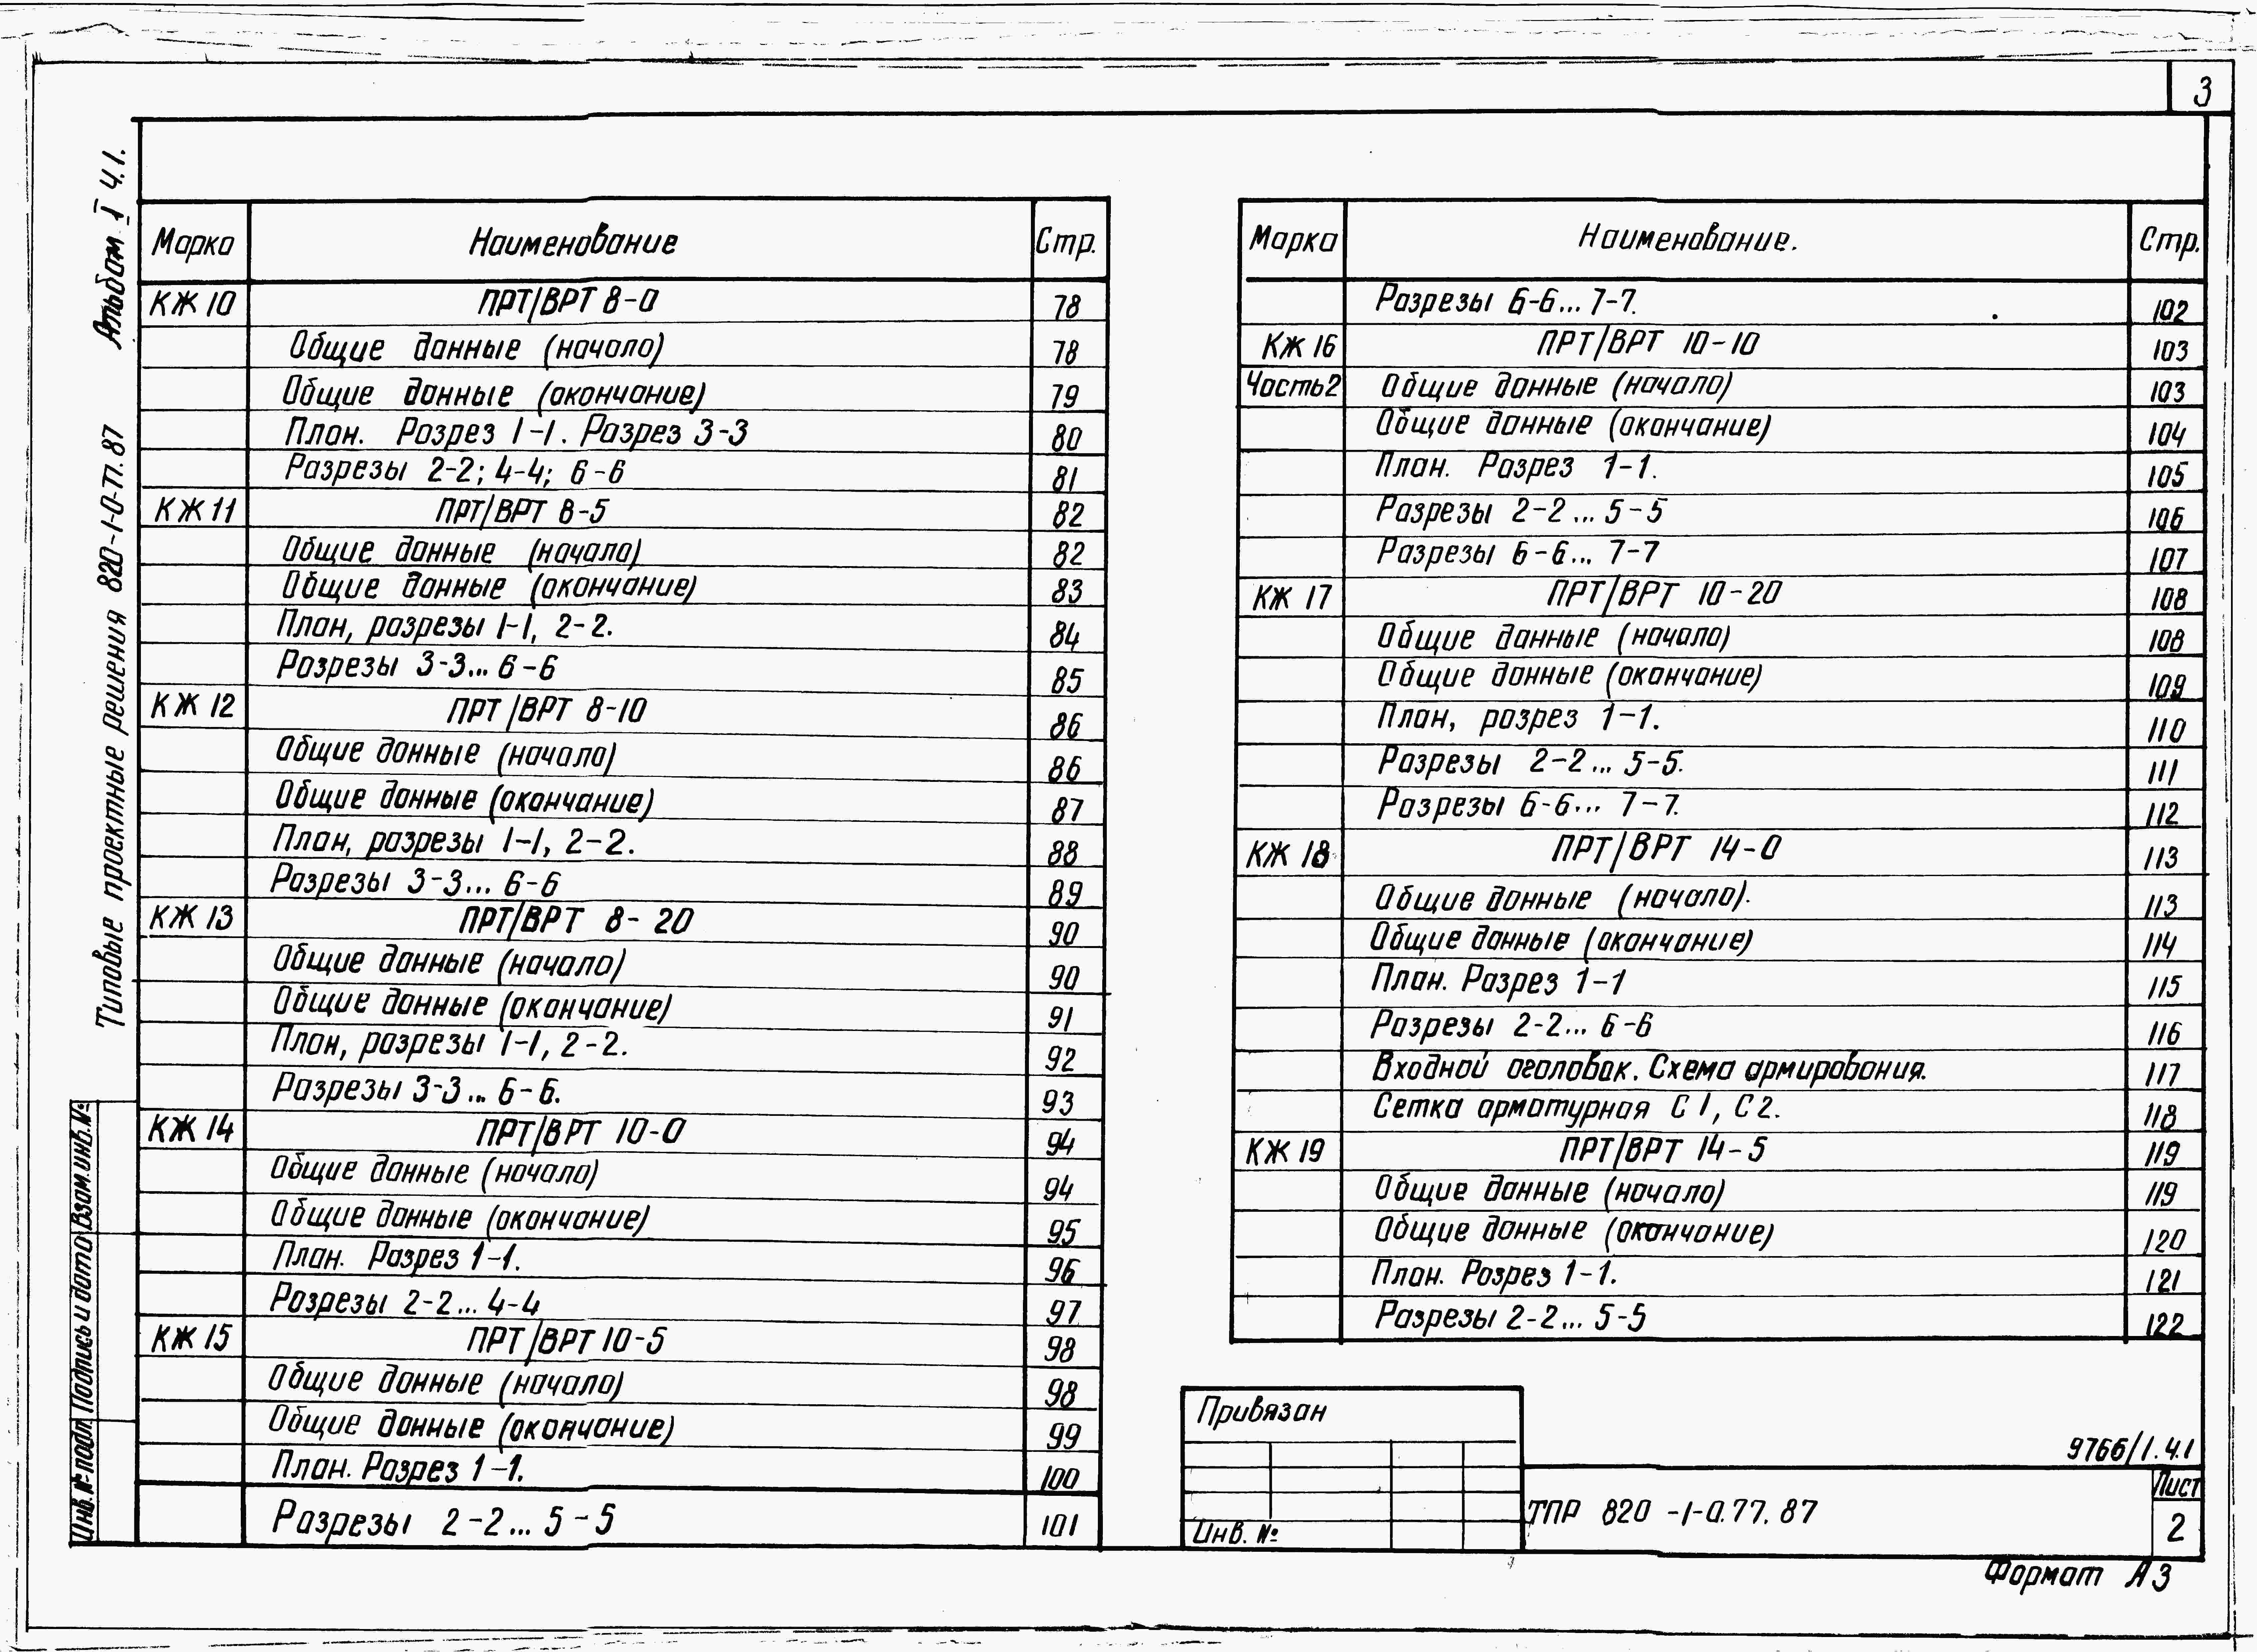 3
Альбом I ч.1.
Типовые проектные решения 820-1-0-77.87
Марка Наименование Стр.
КЖ 10 ПРТ/ВРТ 8-0 78
Общие данные (начало) 78
Общие данные (окончание) 79
План. Разрез 1-1. Разрез 3-3 80
Разрезы 2-2; 4-4; 6-6 81
КЖ 11 ПРТ/ВРТ 8-5 82
Общие данные (начало) 82
Общие данные (окончание) 83
План, разрезы 1-1, 2-2. 84
Разрезы 3-3... 6-6 85
КЖ 12 ПРТ/ВРТ 8-10 86
Общие данные (начало) 86
Общие данные (окончание) 87
План, разрезы 1-1, 2-2. 88
Разрезы 3-3... 6-6 89
КЖ 13 ПРТ/ВРТ 8-20 90
Общие данные (начало) 90
Общие данные (окончание) 91
План, разрезы 1-1, 2-2. 92
Разрезы 3-3... 6-6. 93
КЖ 14 ПРТ/ВРТ 10-0 94
Общие данные (начало) 94
Общие данные (окончание) 95
План. Разрез 1-1. 96
Разрезы 2-2... 4-4 97
КЖ 15 ПРТ/ВРТ 10-5 98
Общие данные (начало) 98
Общие данные (окончание) 99
План. Разрез 1-1. 100
Разрезы 2-2... 5-5 101
Марка Наименование. Стр.
Разрезы 6-6... 7-7. 102
КЖ 16 ПРТ/ВРТ 10-10 103
Часть 2 Общие данные (начало) 103
Общие данные (окончание) 104
План. Разрез 1-1. 105
Разрезы 2-2... 5-5 106
Разрезы 6-6... 7-7 107
КЖ 17 ПРТ/ВРТ 10-20 108
Общие данные (начало) 108
Общие данные (окончание) 109
План, разрез 1-1. 110
Разрезы 2-2... 5-5. 111
Разрезы 6-6... 7-7. 112
КЖ 18 ПРТ/ВРТ 14-0 113
Общие данные (начало). 113
Общие данные (окончание) 114
План. Разрез 1-1 115
Разрезы 2-2... 6-6 116
Входной оголовок. Схема армирования. 117
Сетка арматурная С1, С2. 118
КЖ 19 ПРТ/ВРТ 14-5 119
Общие данные (начало) 119
Общие данные (окончание) 120
План. Разрез 1-1. 121
Разрезы 2-2... 5-5 122
Инв. № подл. Подпись и дата Взам. инв. №
Привязан
Инв. №
9766/1. ч.1
ТПР 820-1-0.77.87
Лист
2
Формат А3